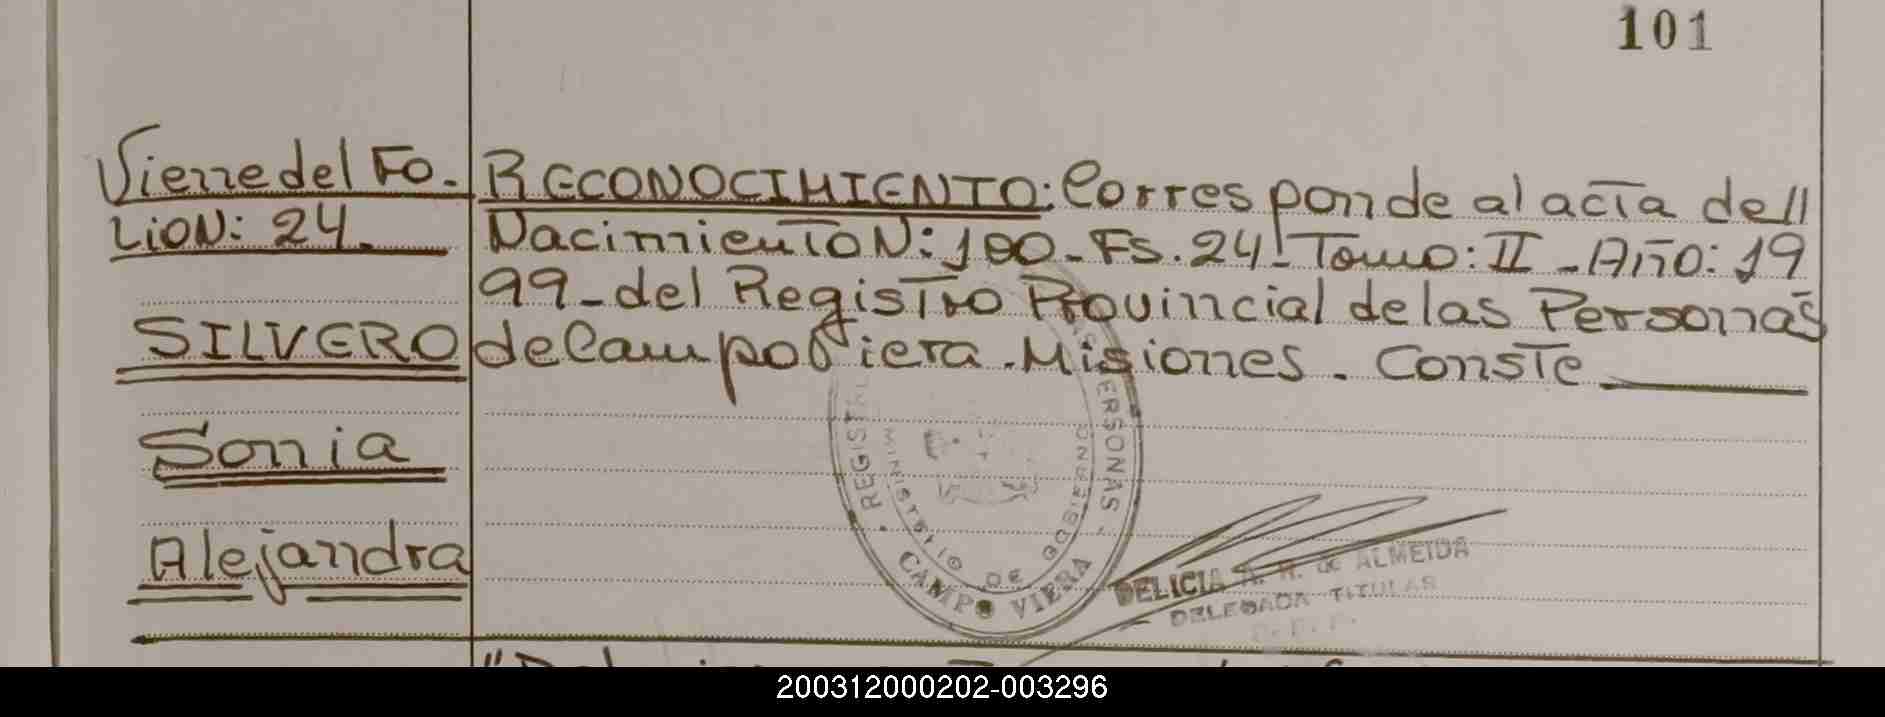 101
Vierre del Fo.
LioN: 24.
SILVERO
Sonia
Alejandra
RECONOCIMIENTO: Corresponde al acta dell
Nacimiento N: 100. Fs. 24. Tomo: II - Año: 19
99 - del Registro Provincial de las Personas
de Campo Viera. Misiones. Conste
MINISTERIO DE GOBIERNO
CAMPO VIERA
PERSONAS
DELICIA A. R. de ALMEIDA
DELEGADA TITULAR
200312000202-003296